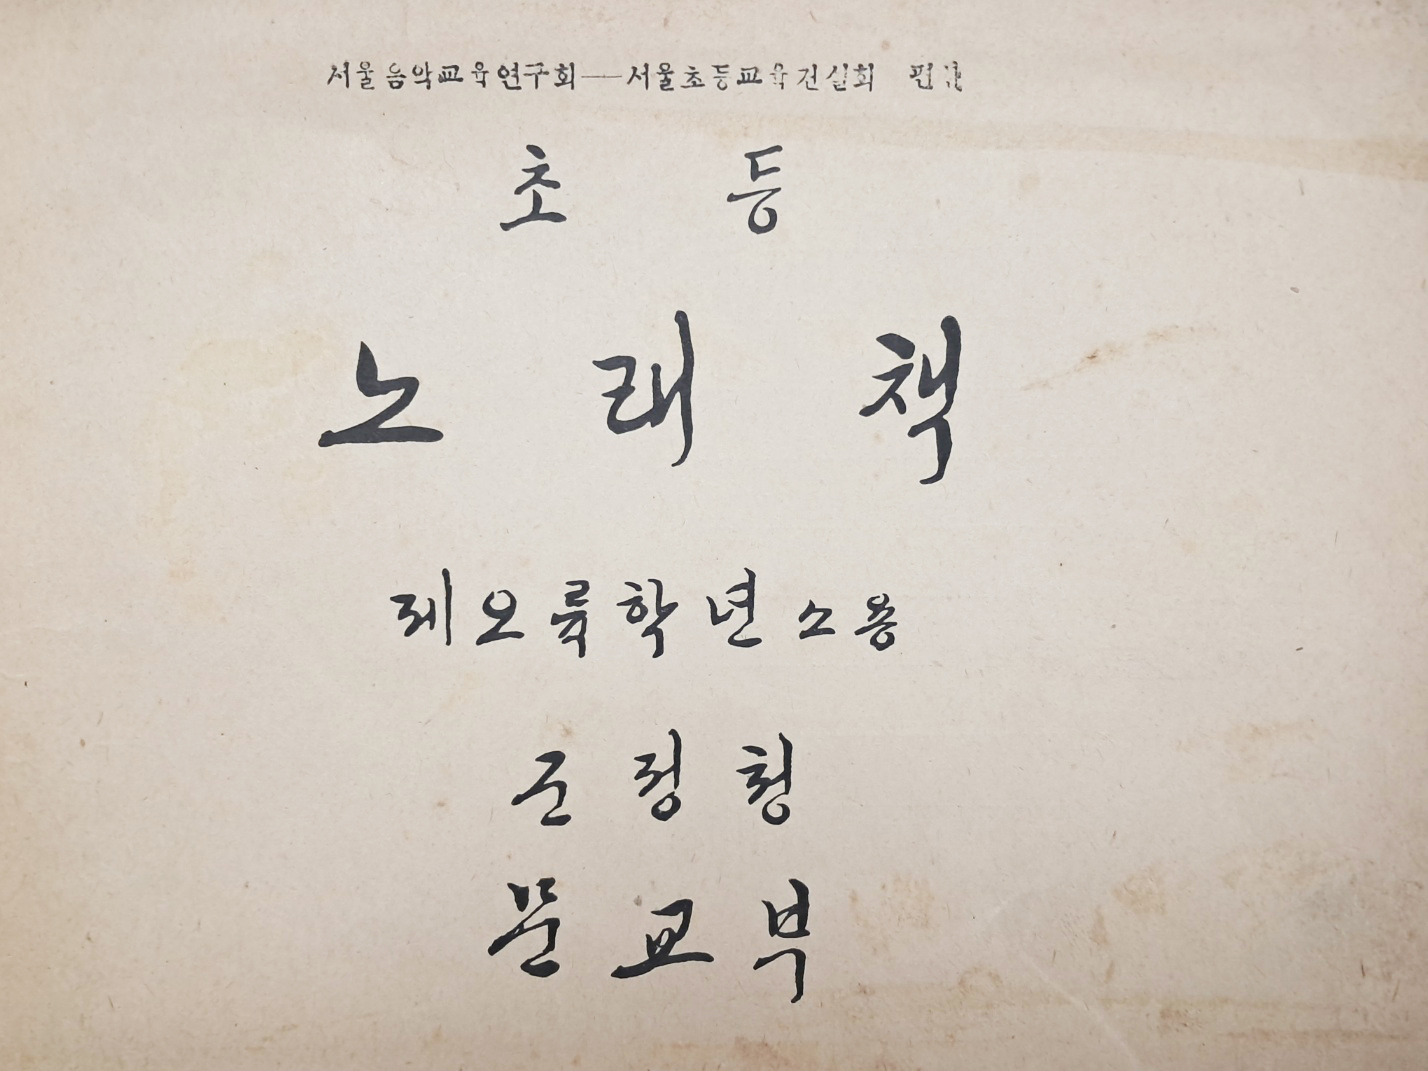 서울음악교육연구회──서울초등교육건설회
초 등
노 래 책
제오륙학년소용
군정청
문교부